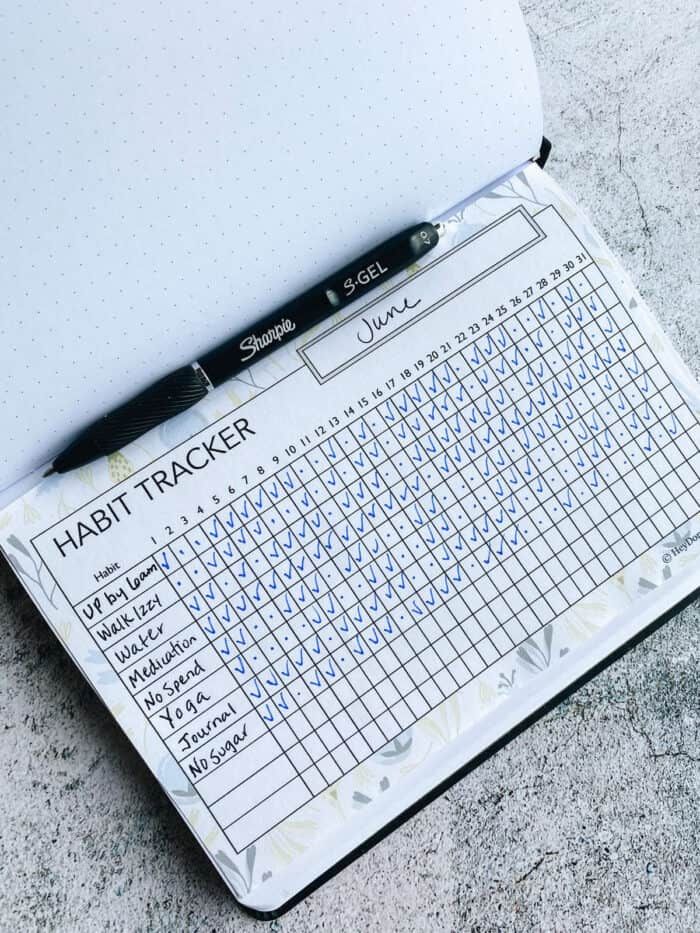 Sharpie S·GEL
June
HABIT TRACKER
Habit 1 2 3 4 5 6 7 8 9 10 11 12 13 14 15 16 17 18 19 20 21 22 23 24 25 26 27 28 29 30 31
up by 6am
Walk Izzy
Water
Medication
No Spend
Yoga
Journal
No Sugar